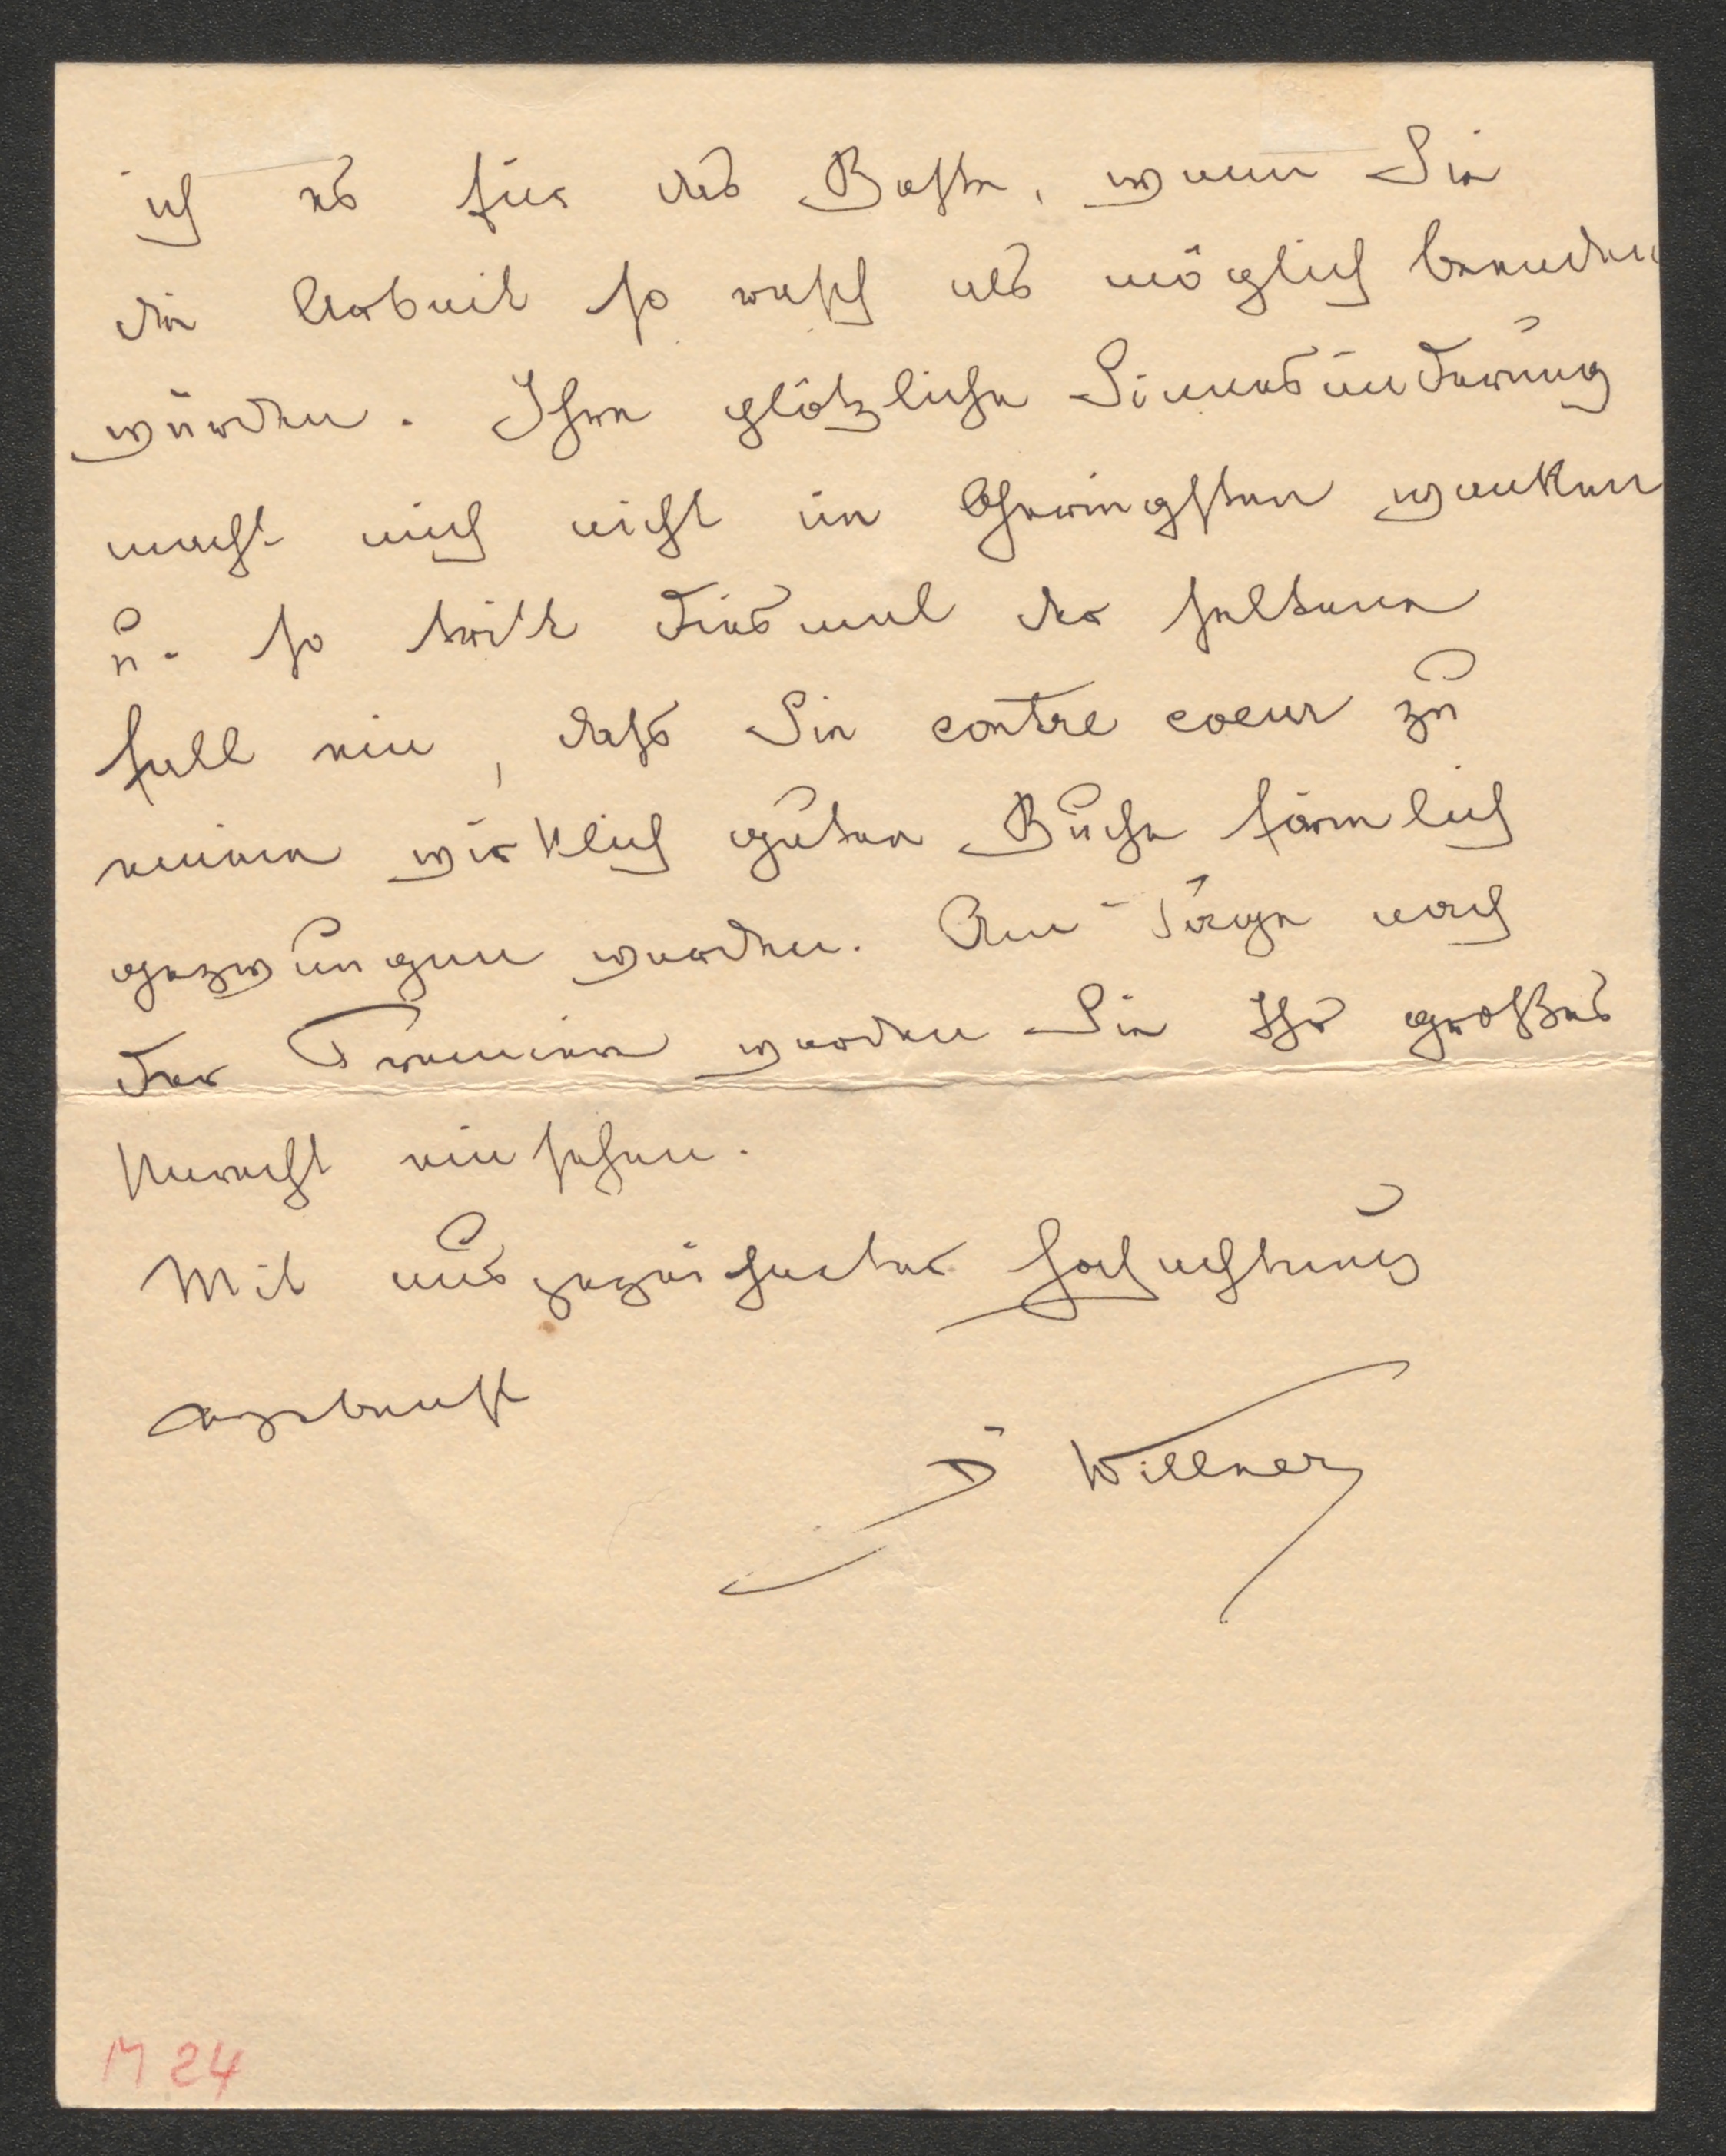 ich es für das Beste, wenn Sie
die Arbeit so rasch als möglich beenden
würden. Ihre plötzliche Sinnesänderung
macht mich nicht im Geringsten wanken
u. so tritt diesmal der seltene
Fall ein, dass Sie contre coeur zu
einem wirklich guten Buche förmlich
gezwungen werden. Am Tage nach
der Premiere werden Sie Ihr großes
Unrecht einsehen.
Mit ausgezeichneter Hochachtung
ergebenst
Dr Willner
M 24